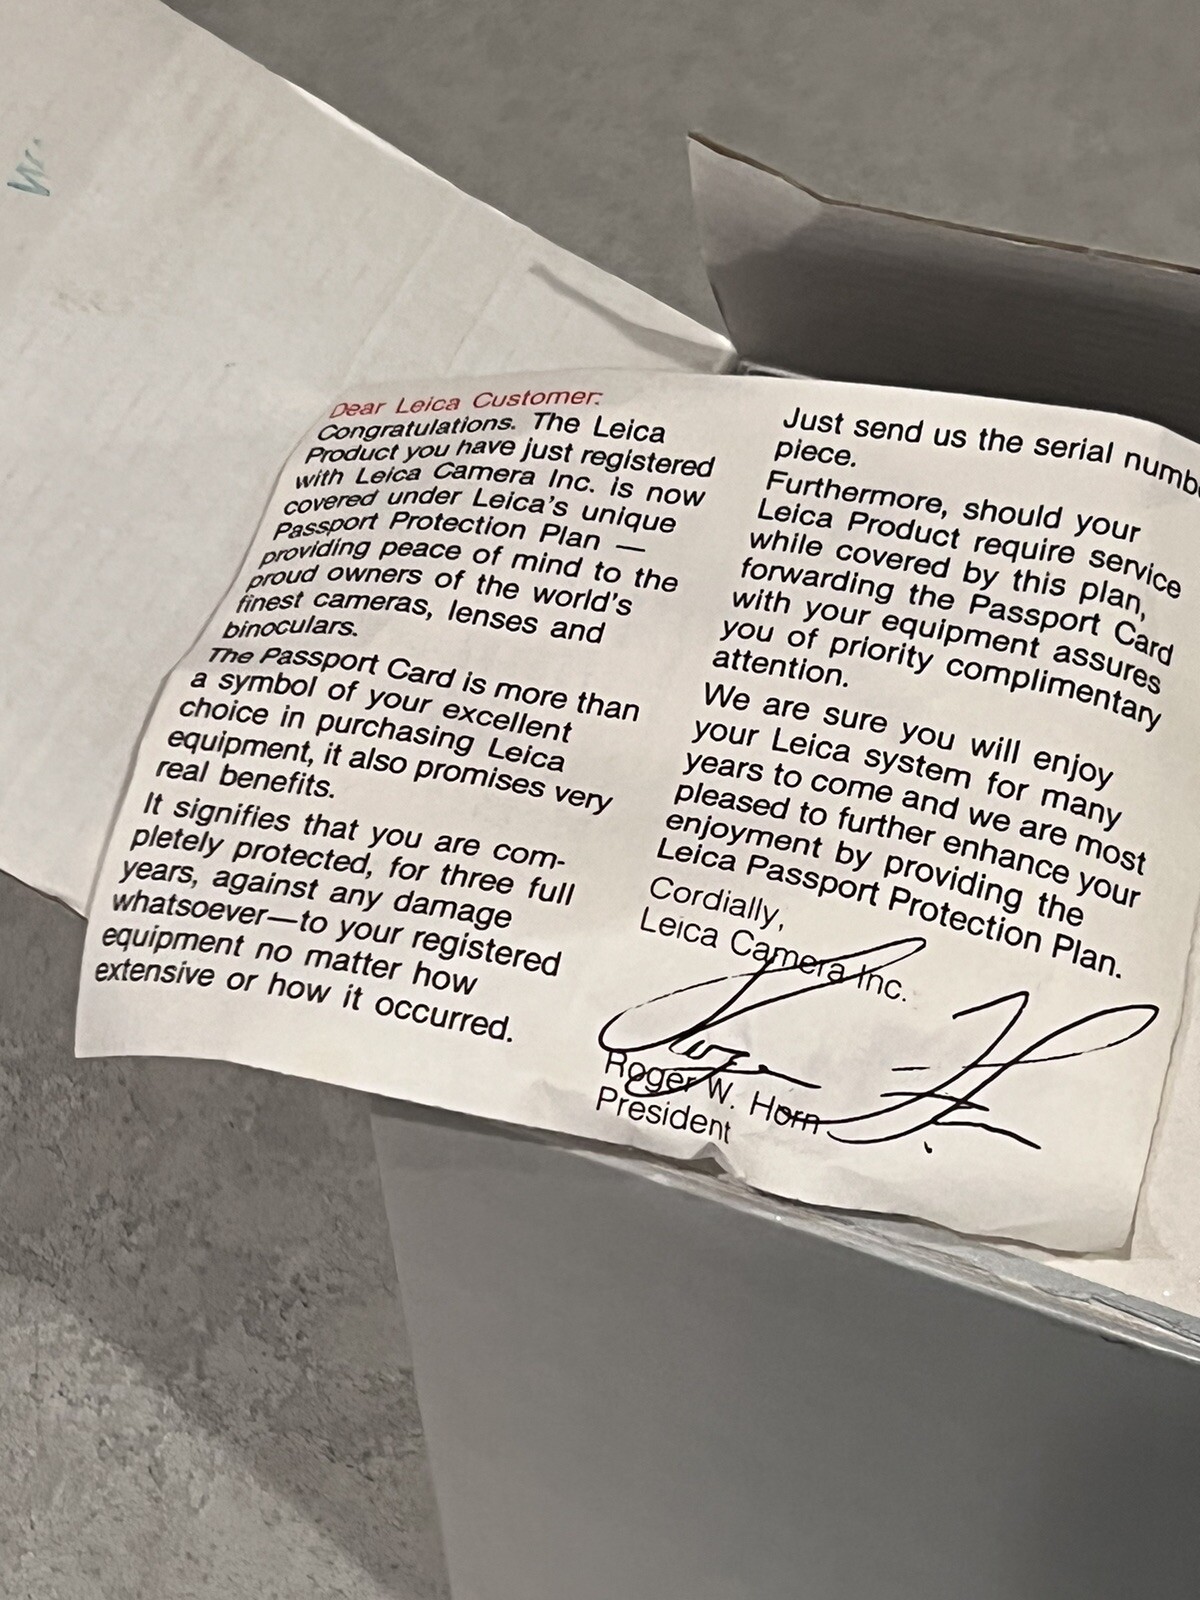 Dear Leica Customer:
Congratulations. The Leica
Product you have just registered
with Leica Camera Inc. is now
covered under Leica's unique
Passport Protection Plan —
providing peace of mind to the
proud owners of the world's
finest cameras, lenses and
binoculars.
The Passport Card is more than
a symbol of your excellent
choice in purchasing Leica
equipment, it also promises very
real benefits.
It signifies that you are com-
pletely protected, for three full
years, against any damage
whatsoever—to your registered
equipment no matter how
extensive or how it occurred.
Just send us the serial
piece.
Furthermore, should your
Leica Product require service
while covered by this plan,
forwarding the Passport Card
with your equipment assures
you of priority complimentary
attention.
We are sure you will enjoy
your Leica system for many
years to come and we are most
pleased to further enhance your
enjoyment by providing the
Leica Passport Protection Plan.
Cordially,
Leica Camera Inc.
Roger W. Horn
President